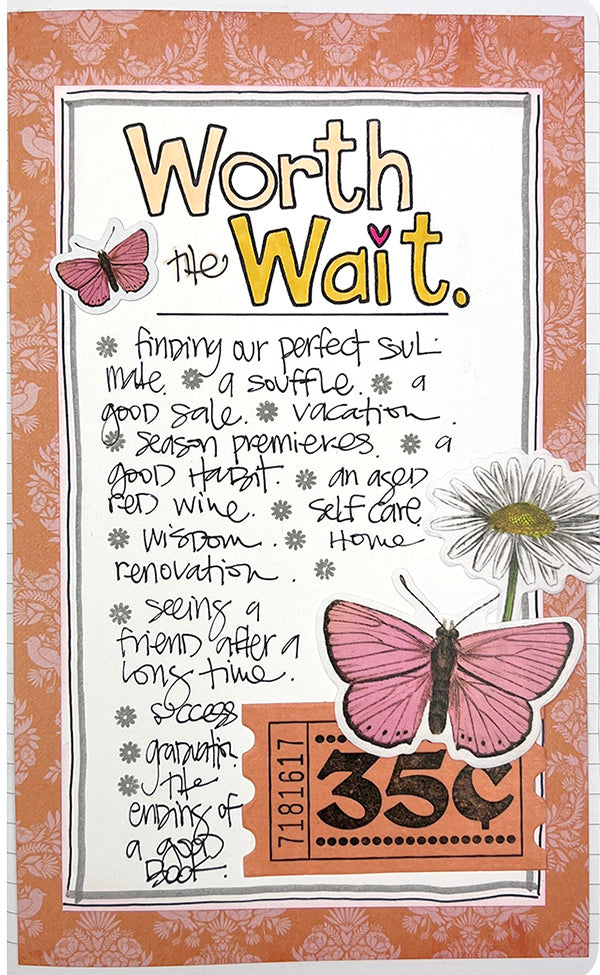 Worth
the Wait.
* finding our perfect soul
mate. * a souffle. * a
good sale. * vacation.
* season premieres. * a
good Habit. * an aged
red wine. * self care.
* wisdom. * Home
renovation. *
* seeing a
friend after a
long time.
* success
* graduation.
* the
ending of
a good
book.
7181617
35¢